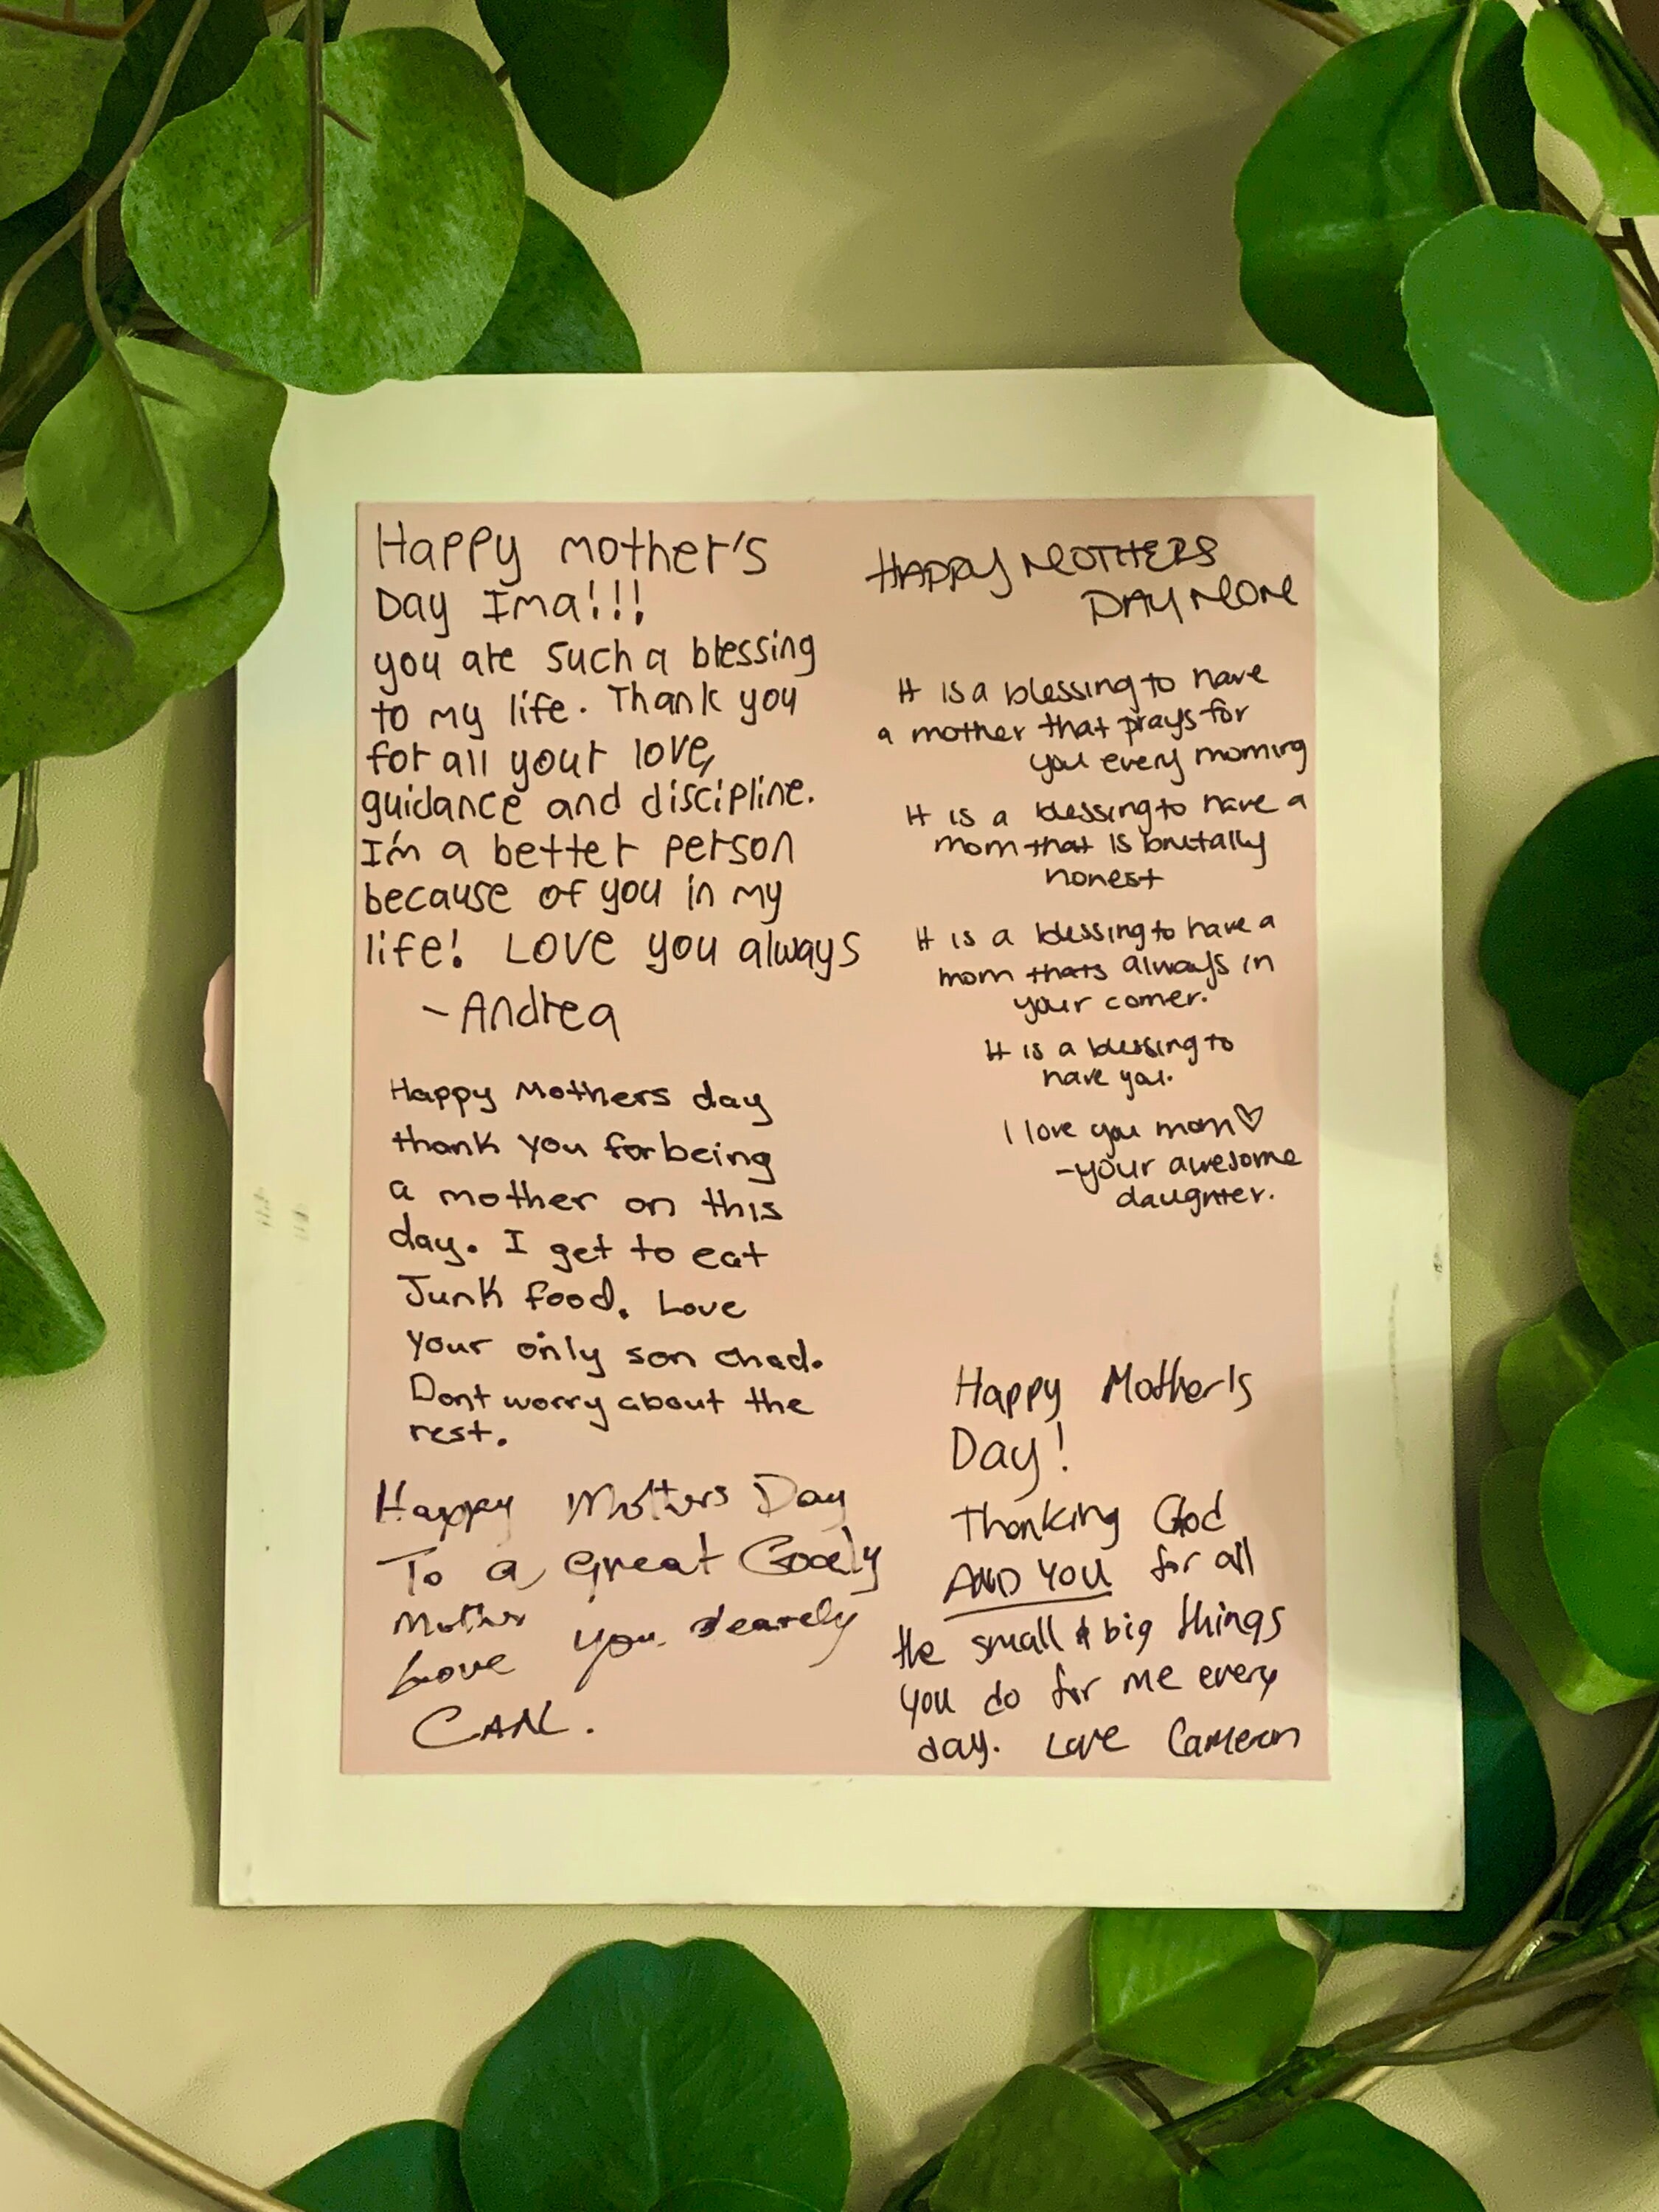 Happy mother's
Day Ima!!!
you are such a blessing
to my life. Thank you
for all your love,
guidance and discipline.
I'm a better person
because of you in my
life! LOVE you always
~Andrea
Happy Mothers day
thank you for being
a mother on this
day. I get to eat
Junk food. Love
your only son chad.
Dont worry about the
rest.
Happy Mothers Day
To a Great Goodly
Mother
Love you dearely
CARL.
HAPPY MOTHERS
DAY MOM
It is a blessing to have
a mother that prays for
you every morning
It is a blessing to have a
mom that is brutally
honest
It is a blessing to have a
mom thats always in
your corner.
It is a blessing to
have you.
I love you mom♡
-your awesome
daughter.
Happy Mother's
Day!
Thanking God
AND YOU for all
the small & big things
you do for me every
day. Love Cameron